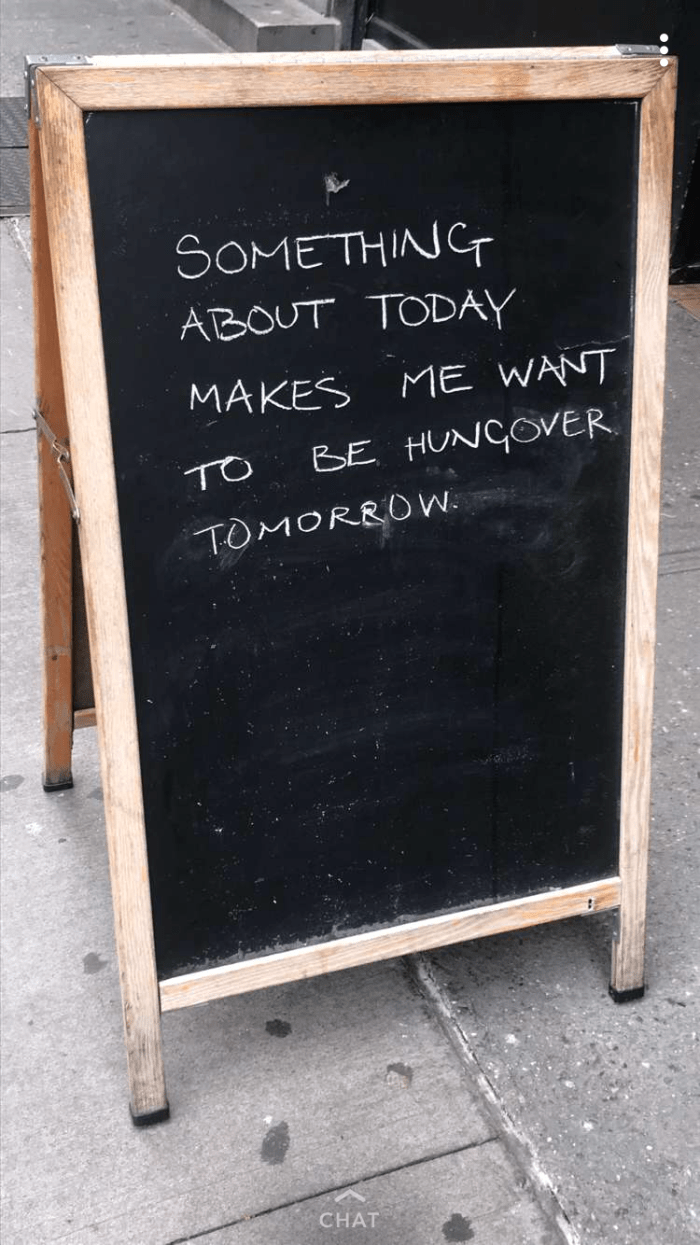 SOMETHING
ABOUT TODAY
MAKES ME WANT
TO BE HUNGOVER
TOMORROW.
CHAT